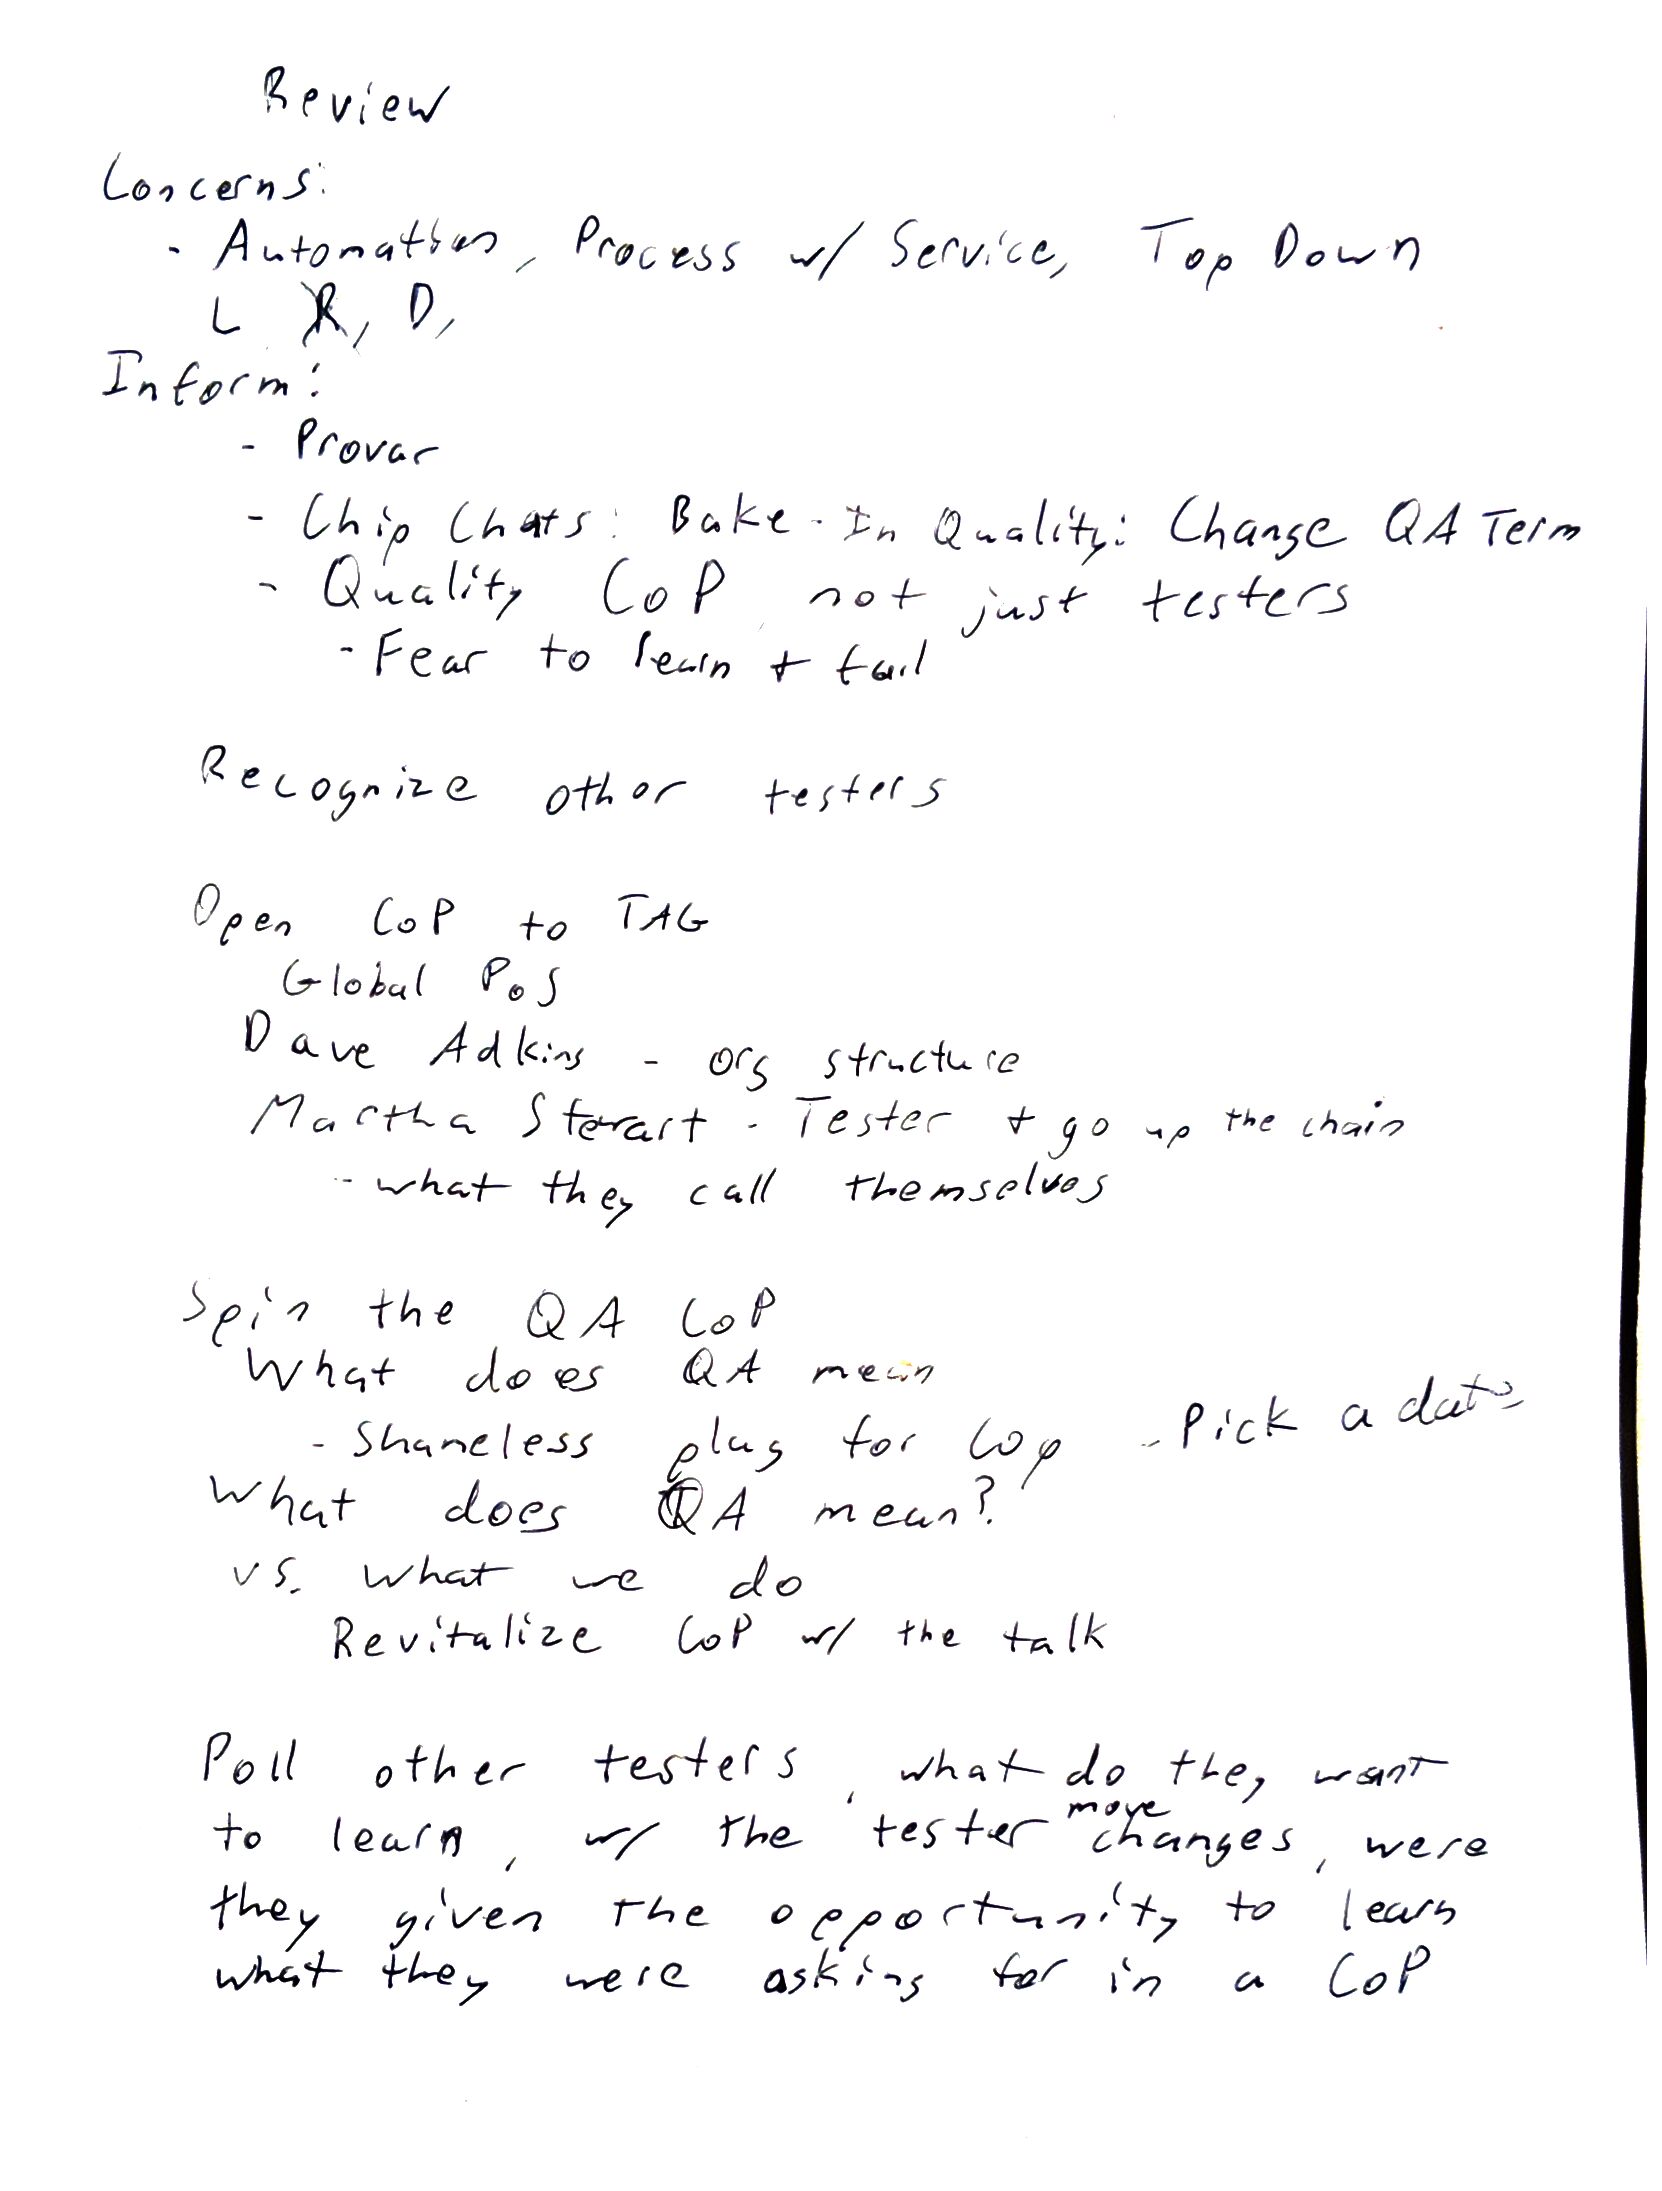 Review
Concerns:
- Automation, Process w/ Service, Top Down
L R, D,
Inform:
- Provar
- Chip Chats: Bake-In Quality: Change QA Term
- Quality CoP not just testers
- Fear to learn + fail
Recognize other testers
Open CoP to TAG
Global PoS
Dave Adkins - org structure
Martha - Tester + go up the chain
- what they call themselves
Spin the QA CoP
What does QA mean
- Shameless plug for Cop - Pick a date
What does QA mean?
vs. what we do
Revitalize CoP w/ the talk
Poll other testers, what do they want
to learn, w/ the tester move changes, were
they given the opportunity to learn
what they were asking for in a CoP